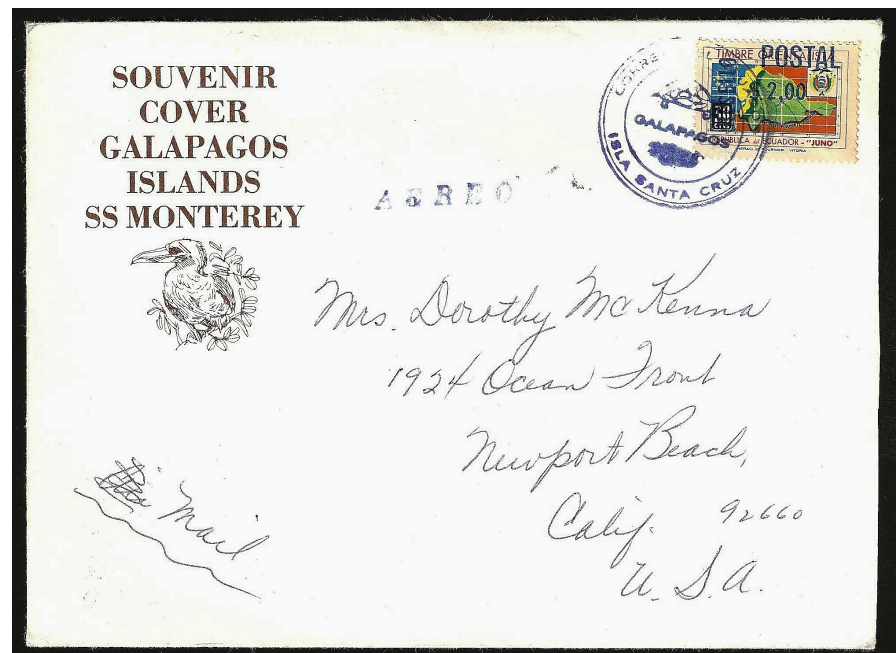 SOUVENIR
COVER
GALAPAGOS
ISLANDS
SS MONTEREY
AEREO
GALAPAGOS
ISLA SANTA CRUZ
TIMBRE
POSTAL
2.00
ECUADOR - "JUNO"
Mrs. Dorothy McKenna
1924 Ocean Front
Newport Beach,
Calif. 92660
U.S.A.
Mail